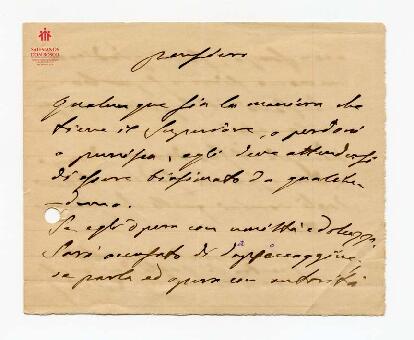 SALESIANOS
DOM BOSCO
pensiero
Qualunque sia la maniera che
tiene il Superiore, o perdoni
o punisca, egli deve attendersi
di essere biasimato da qualche-
duno.
Se egli opera con umiltà e dolcezza
Sarà accusato di
se parla ed opera con autorità